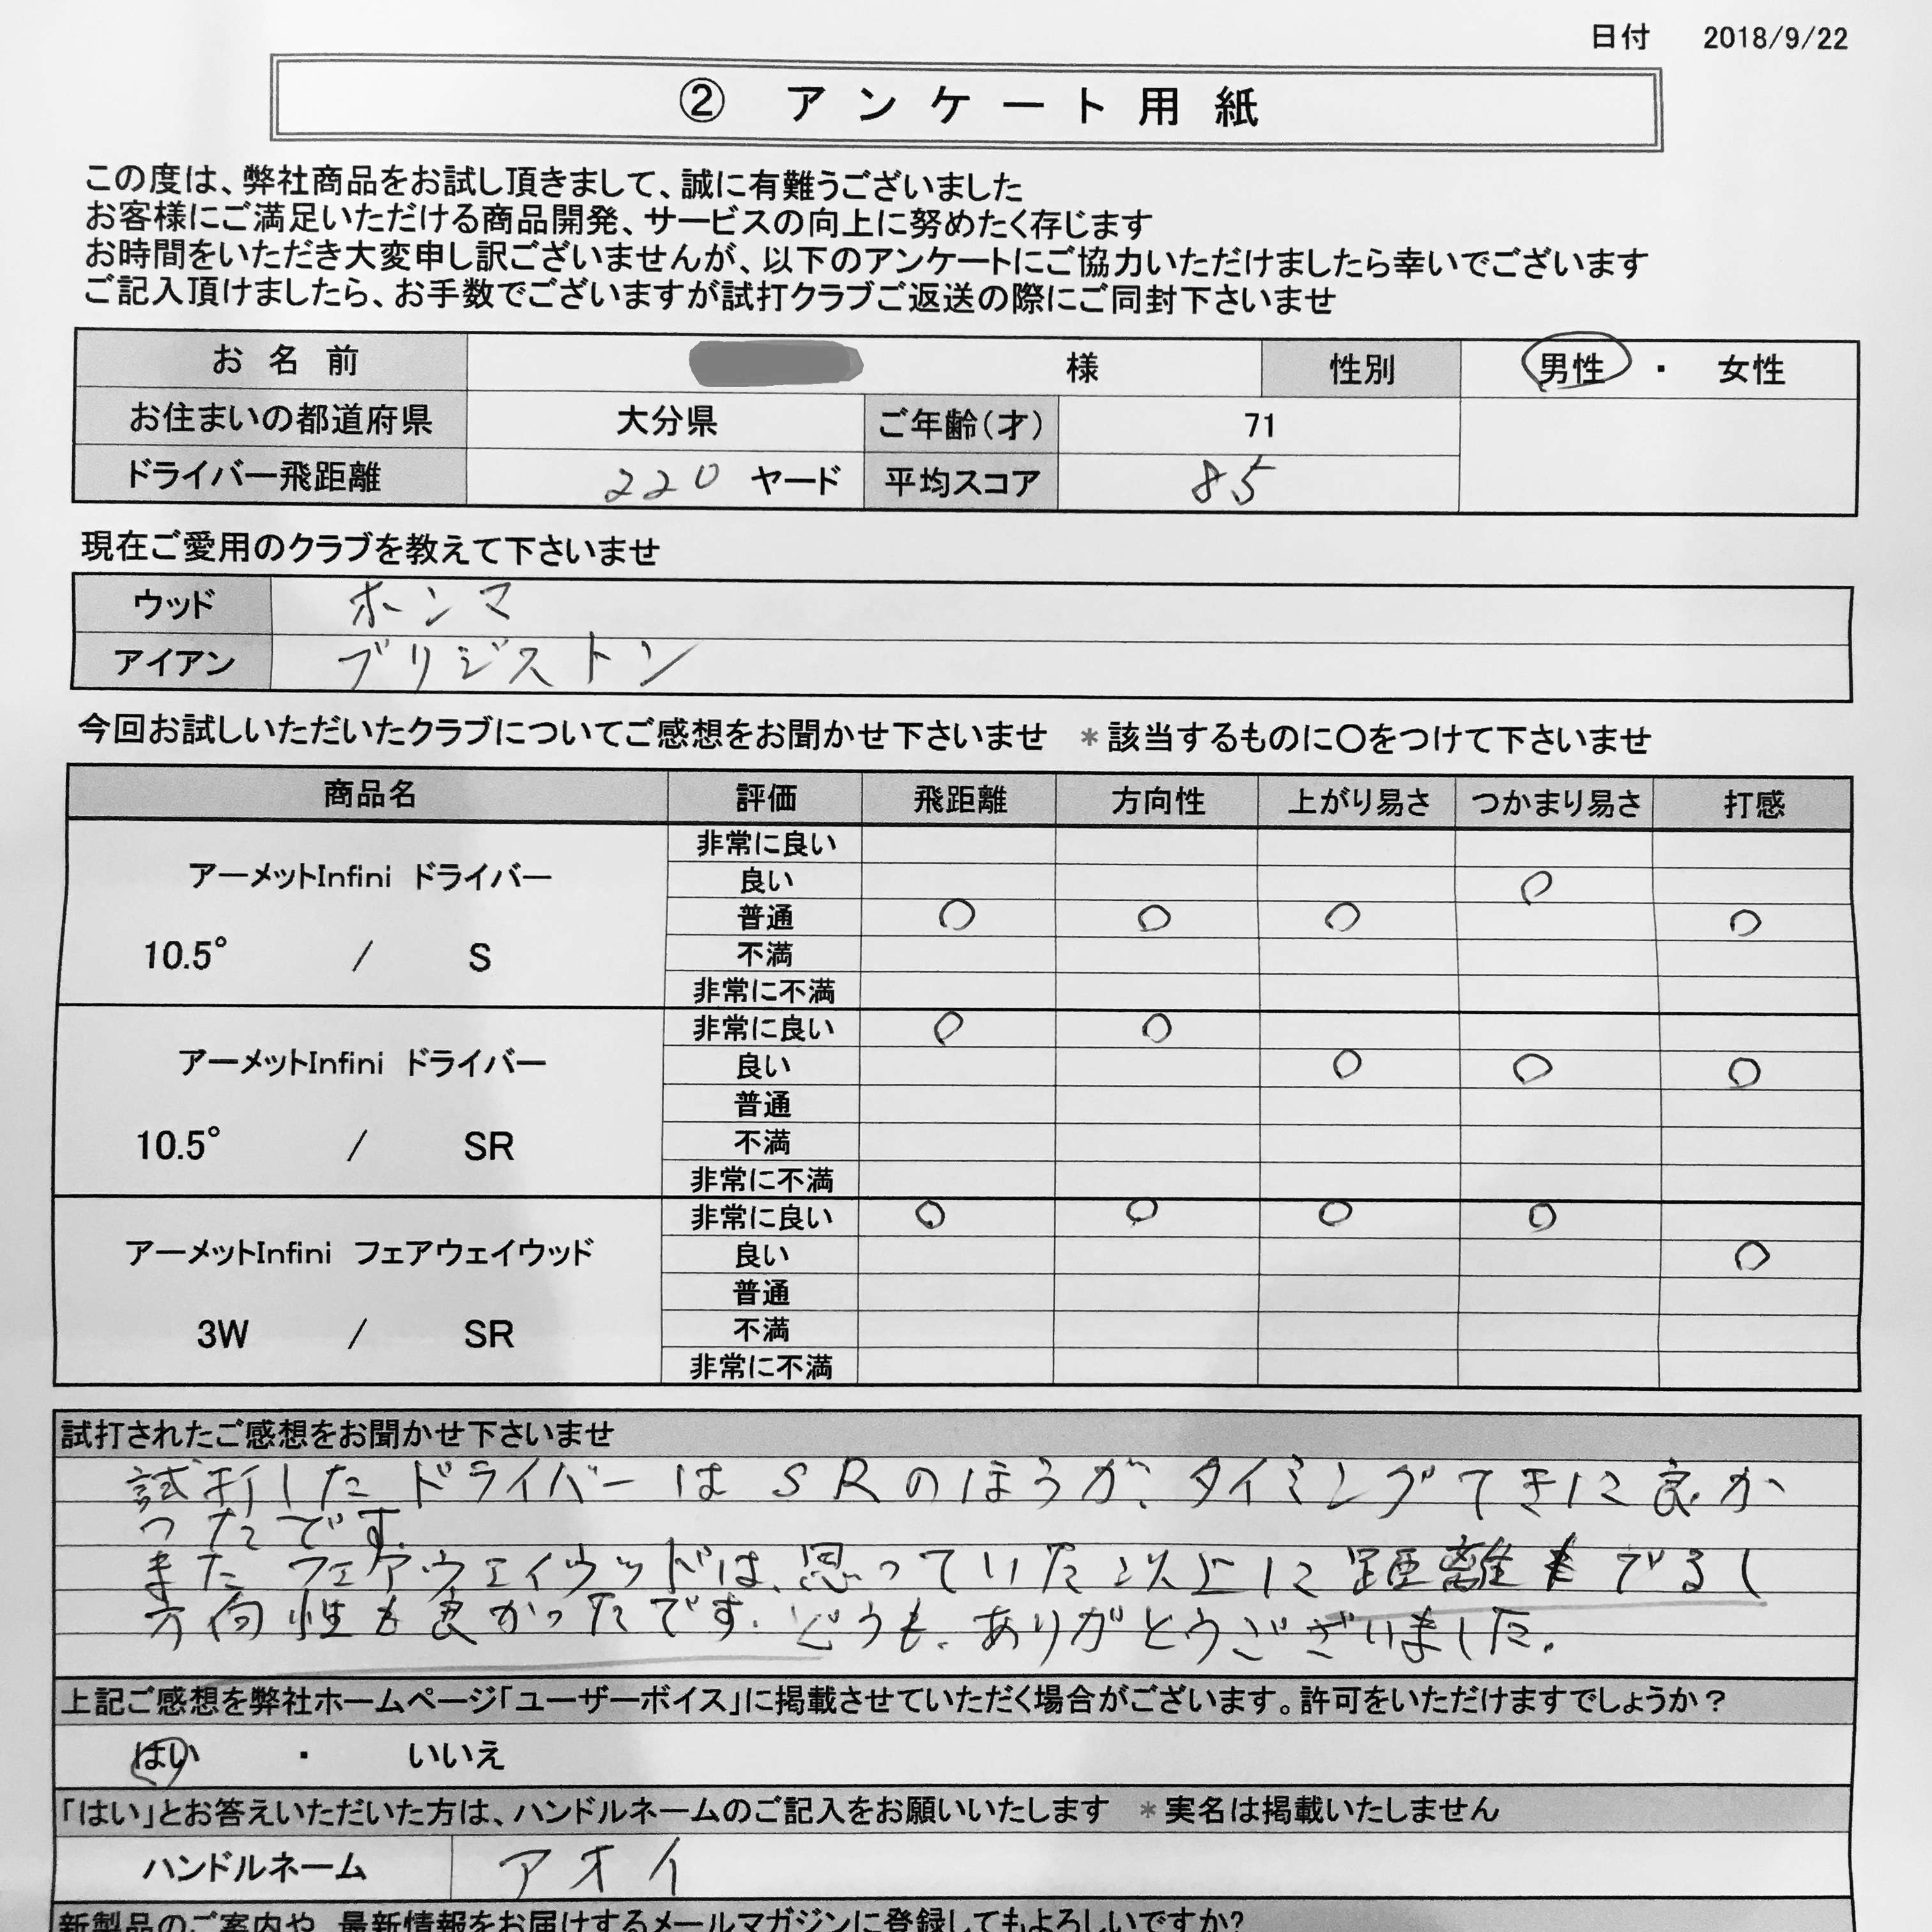 日付 2018/9/22
② アンケート用紙
この度は、弊社商品をお試し頂きまして、誠に有難うございました
お客様にご満足いただける商品開発、サービスの向上に努めたく存じます
お時間をいただき大変申し訳ございませんが、以下のアンケートにご協力いただけましたら幸いでございます
ご記入頂けましたら、お手数でございますが試打クラブご返送の際にご同封下さいませ
お名前 様 性別 男性 ・ 女性
お住まいの都道府県 大分県 ご年齢(才) 71
ドライバー飛距離 220 ヤード 平均スコア 85
現在ご愛用のクラブを教えて下さいませ
ウッド ホンマ
アイアン ブリジストン
今回お試しいただいたクラブについてご感想をお聞かせ下さいませ *該当するものに〇をつけて下さいませ
商品名 評価 飛距離 方向性 上がり易さ つかまり易さ 打感
アーメットInfini ドライバー
10.5° / S
非常に良い
良い 〇
普通 〇 〇 〇 〇
不満
非常に不満
アーメットInfini ドライバー
10.5° / SR
非常に良い 〇 〇
良い 〇 〇 〇
普通
不満
非常に不満
アーメットInfini フェアウェイウッド
3W / SR
非常に良い 〇 〇 〇 〇
良い 〇
普通
不満
非常に不満
試打されたご感想をお聞かせ下さいませ
試打したドライバーはSRのほうが、タイミングてきに良か
ったです。
またフェアウェイウッドは、思っていた以上に距離もでるし
方向性も良かったです。どうも、ありがとうございました。
上記ご感想を弊社ホームページ「ユーザーボイス」に掲載させていただく場合がございます。許可をいただけますでしょうか？
はい ・ いいえ
「はい」とお答えいただいた方は、ハンドルネームのご記入をお願いいたします *実名は掲載いたしません
ハンドルネーム アオイ
新製品のご案内や、最新情報をお届けするメールマガジンに登録してもよろしいですか?